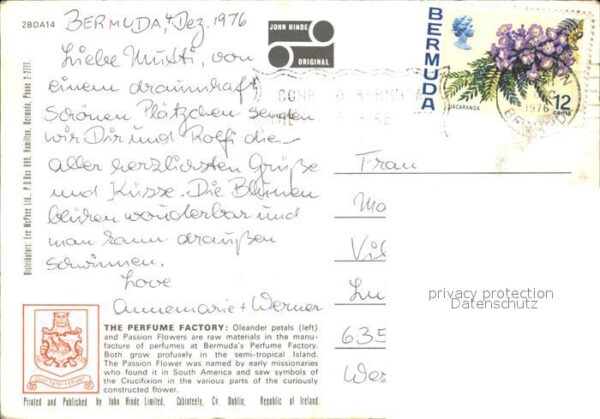 2BDA14
BERMUDA, 4. Dez. 1976
Liebe Mutti, von
einem traumhaft
schönen Plätzchen senden
wir Dir und Rolfi die
aller herzlichsten Grüße
und Küsse. Die Blumen
blühen wunderbar und
man kann draußen
schwimmen.
Love
Annemarie + Werner
JOHN HINDE
ORIGINAL
BERMUDA
JACARANDA
12
cents
1976
Frau
Ma
Vil
Lu
635
Wes
privacy protection
Datenschutz
Distributors. Lee McPhee Ltd., P.O Box 899, Hamilton, Bermuda, Phone 2-2777.
THE PERFUME FACTORY: Oleander petals (left)
and Passion Flowers are raw materials in the manu-
facture of perfumes at Bermuda's Perfume Factory.
Both grow profusely in the semi-tropical Island.
The Passion Flower was named by early missionaries
who found it in South America and saw symbols of
the Crucifixion in the various parts of the curiously
constructed flower.
Printed and Published by John Hinde Limited, Cabinteely, Co. Dublin, Republic of Ireland.